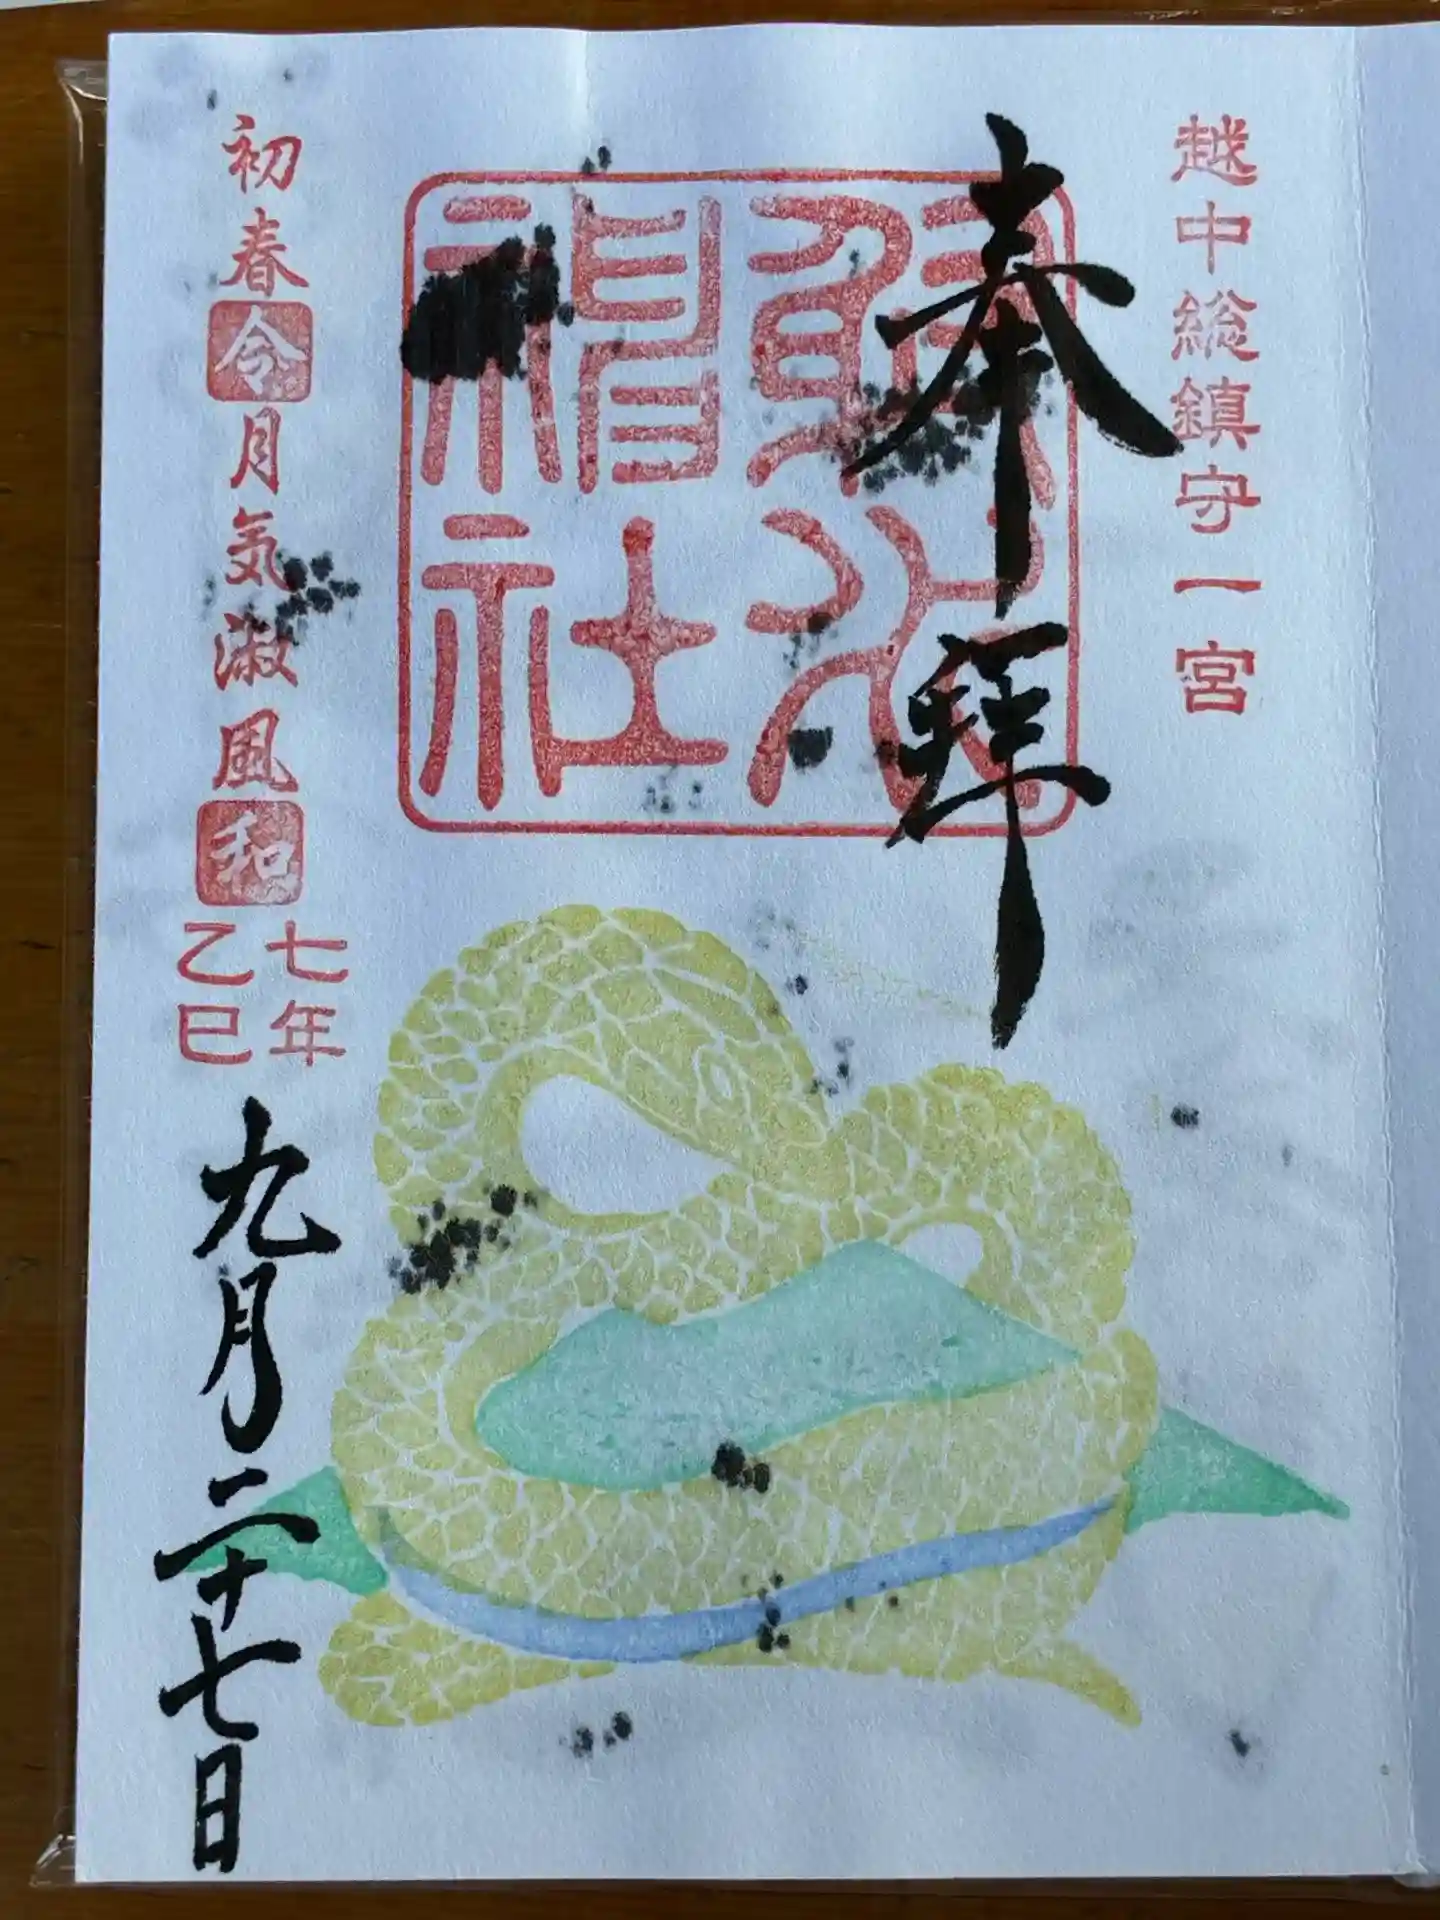 越中総鎮守一宮
奉拝
射水
神社
初春令月気淑風和
七年
乙巳
九月二十七日